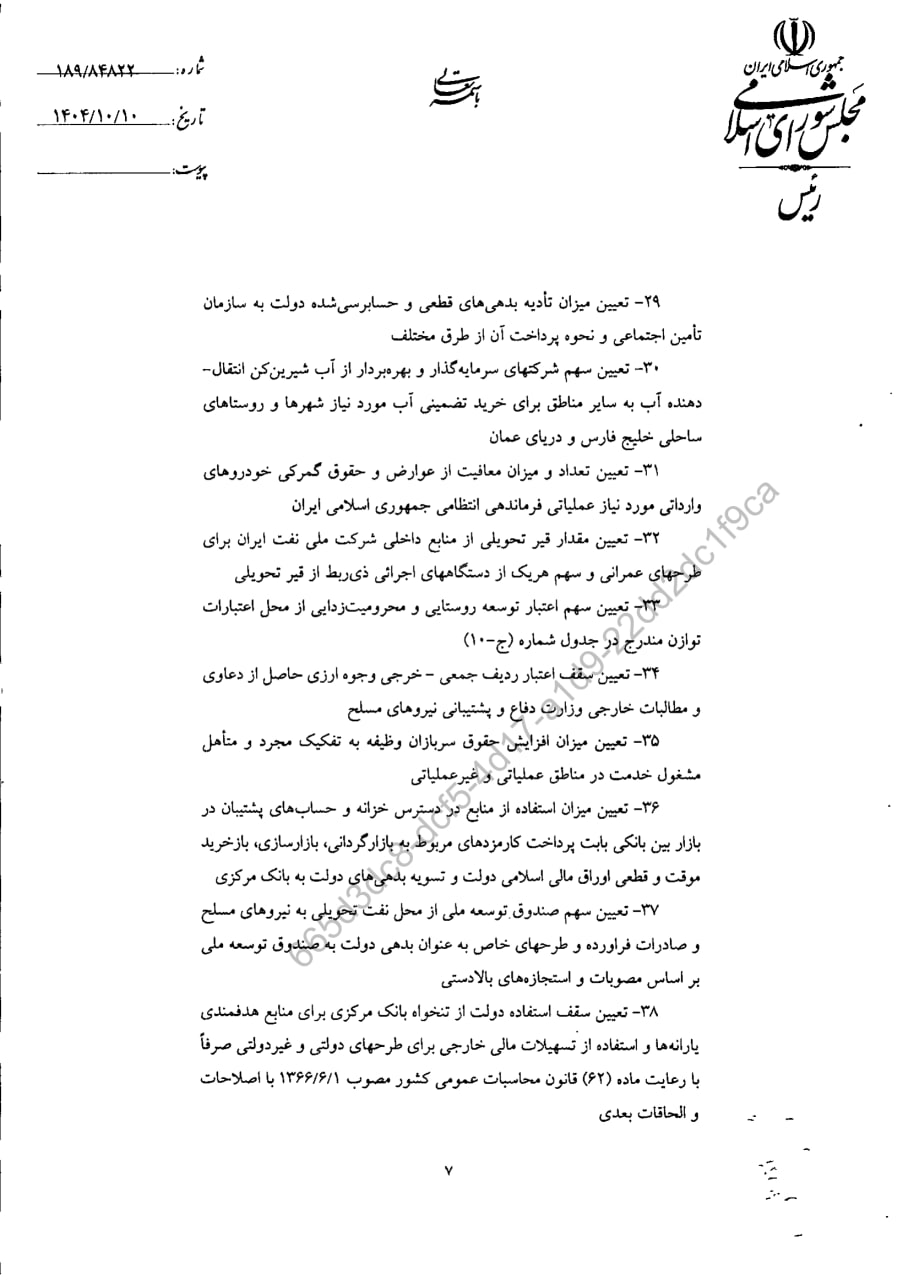 جمهوری اسلامی ایران
مجلس شورای اسلامی
رئیس
باسمه تعالی
شماره: ۱۸۹/۸۴۸۲۲
تاریخ: ۱۴۰۴/۱۰/۱۰
پیوست:
۲۹- تعیین میزان تأدیه بدهی‌های قطعی و حسابرسی‌شده دولت به سازمان
تأمین اجتماعی و نحوه پرداخت آن از طرق مختلف
۳۰- تعیین سهم شرکتهای سرمایه‌گذار و بهره‌بردار از آب شیرین‌کن انتقال-
دهنده آب به سایر مناطق برای خرید تضمینی آب مورد نیاز شهرها و روستاهای
ساحلی خلیج فارس و دریای عمان
۳۱- تعیین تعداد و میزان معافیت از عوارض و حقوق گمرکی خودروهای
وارداتی مورد نیاز عملیاتی فرماندهی انتظامی جمهوری اسلامی ایران
۳۲- تعیین مقدار قیر تحویلی از منابع داخلی شرکت ملی نفت ایران برای
طرحهای عمرانی و سهم هریک از دستگاههای اجرائی ذی‌ربط از قیر تحویلی
۳۳- تعیین سهم اعتبار توسعه روستایی و محرومیت‌زدایی از محل اعتبارات
توازن مندرج در جدول شماره (ج-۱۰)
۳۴- تعیین سقف اعتبار ردیف جمعی - خرجی وجوه ارزی حاصل از دعاوی
و مطالبات خارجی وزارت دفاع و پشتیبانی نیروهای مسلح
۳۵- تعیین میزان افزایش حقوق سربازان وظیفه به تفکیک مجرد و متأهل
مشغول خدمت در مناطق عملیاتی و غیرعملیاتی
۳۶- تعیین میزان استفاده از منابع در دسترس خزانه و حساب‌های پشتیبان در
بازار بین بانکی بابت پرداخت کارمزدهای مربوط به بازارگردانی، بازارسازی، بازخرید
موقت و قطعی اوراق مالی اسلامی دولت و تسویه بدهی‌های دولت به بانک مرکزی
۳۷- تعیین سهم صندوق توسعه ملی از محل نفت تحویلی به نیروهای مسلح
و صادرات فراورده و طرحهای خاص به عنوان بدهی دولت به صندوق توسعه ملی
بر اساس مصوبات و استجازه‌های بالادستی
۳۸- تعیین سقف استفاده دولت از تنخواه بانک مرکزی برای منابع هدفمندی
یارانه‌ها و استفاده از تسهیلات مالی خارجی برای طرحهای دولتی و غیردولتی صرفاً
با رعایت ماده (۶۲) قانون محاسبات عمومی کشور مصوب ۱۳۶۶/۶/۱ با اصلاحات
و الحاقات بعدی
۷
665d3dc8-dcf5-4d17-a1d9-22dd2dc1f9ca